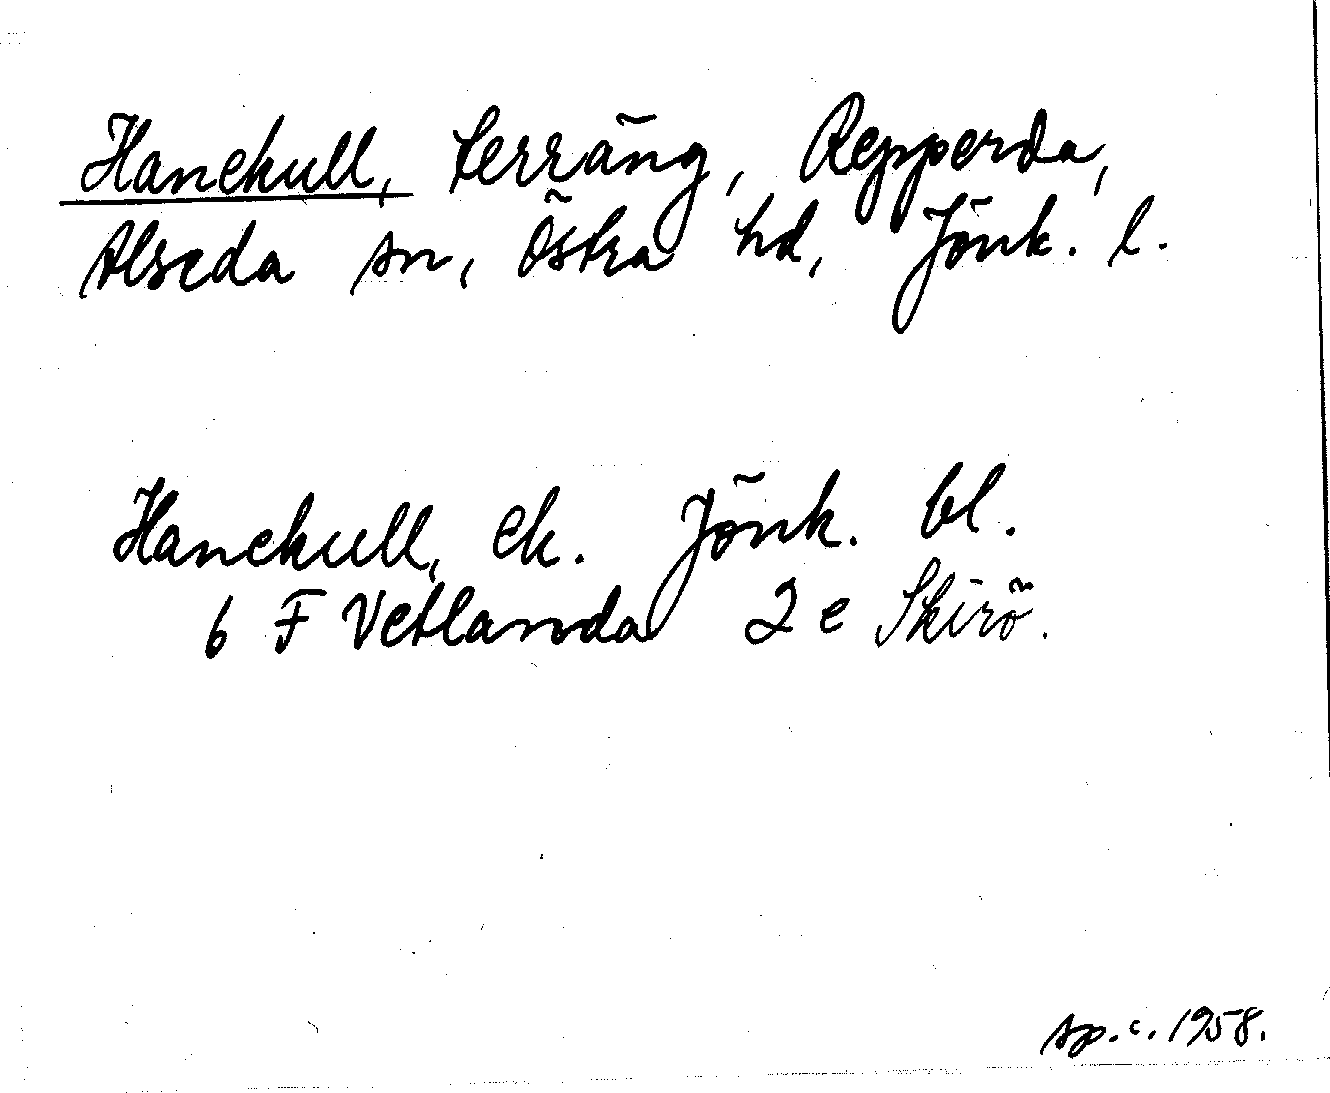 Hanekull, terräng, Repperda,
Alseda sn, Östra hd, Jönk. l.
Hanekull, ek. Jönk. bl.
6 F Vetlanda 2 e Skirö.
sp. c. 1958.